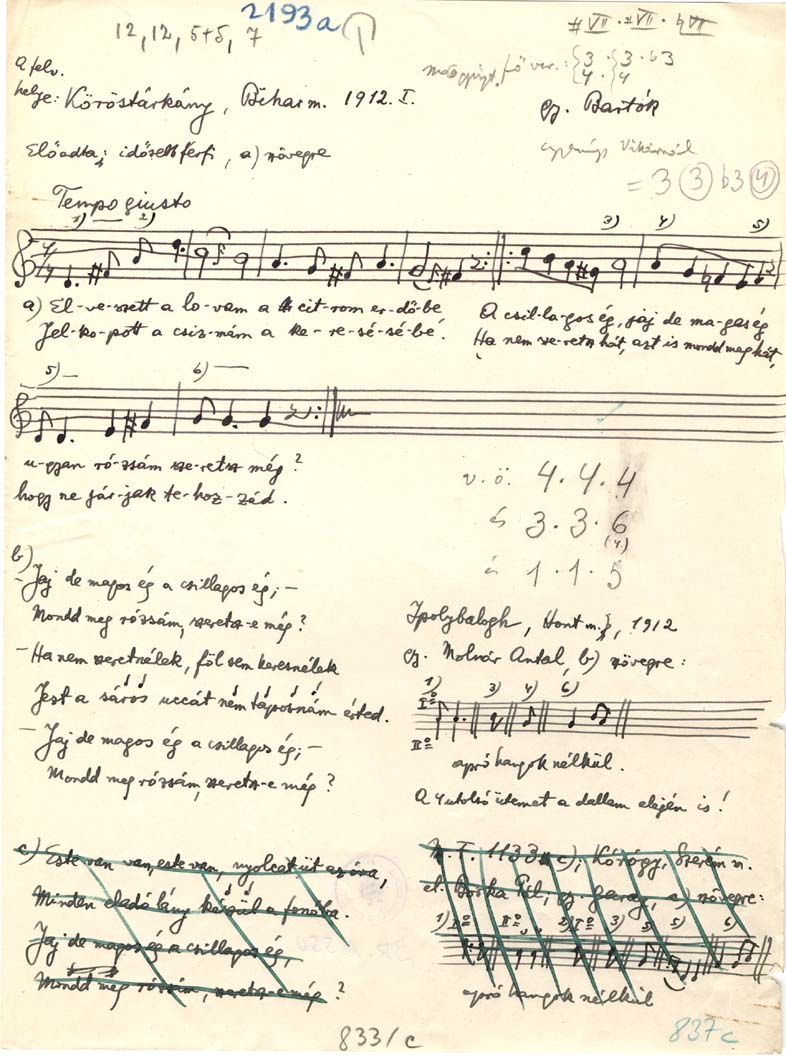 2193a
12, 12, 5+5, 7
#VII · #VII · ♮VI
A felv.
helye: Köröstárkány, Biharm. 1912. I.
fő var.: {3 4 · {3 4 · b3
gy. Bartók
Előadta: idősebb férfi, a) szövegre
Vikárnál
= 3 (3) b3 (4)
Tempo giusto
1) 2) 3) 4) 5)
a) El-ve-szett a lo-vam a cit-rom er-dő-be A csil-la-gos ég, jaj de ma-gas ég
Jel-ko-pott a csiz-mám a ke-re-sé-sé-bé. Ha nem sze-retsz hát, azt is mondd meg hát,
5) 6)
u-gyan ró-zsám sze-retsz még?
hogy ne jár-jak te-hoz-zád.
v. ö. 4. 4. 4
és 3. 3. 6
(4)
és 1. 1. 5
b)
- Jaj de magos ég a csillagos ég; -
Mondd meg rózsám, szeretsz-e még?
- Ha nem szeretnélek, föl sem keresnélek
Jest a sáros uccát nem taposnám érted.
- Jaj de magos ég a csillagos ég; -
Mondd meg rózsám, szeretsz-e még?
Ipolybalogh, Hont m., 1912
gy. Molnár Antal, b) szövegre:
1) 3) 4) 6)
I⁰
II⁰
apró hangok nélkül.
A 4 utolsó ütemet a dallam elején is!
c) Este van van, este van, nyolcat üt az óra,
Minden eladó lány készül a fonóba.
Jaj de magos ég a csillagos ég,
Mondd meg rózsám, szeretsz-e még?
M. F. 1133 c); Kórógy, Szerém m.
el. Boska Pál, gy. Garay, a) szövegre:
1) I⁰ II⁰ 2) I⁰ 3) 5) 5) 6)
apró hangok nélkül
833/c
837c